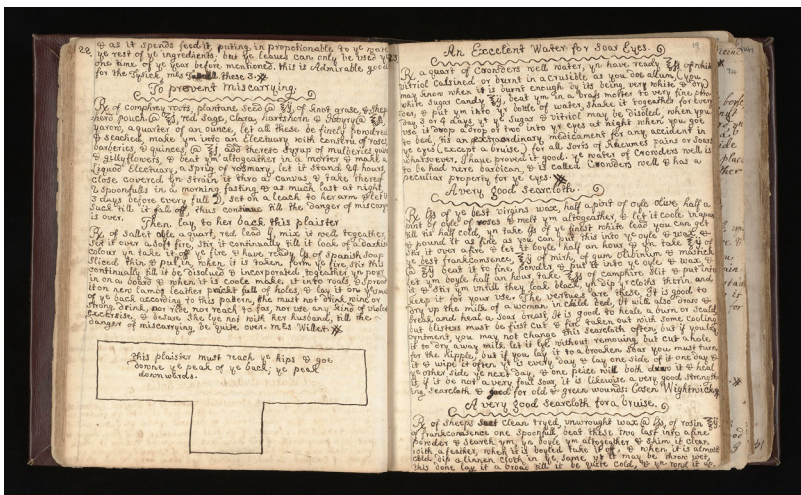 28 & as it spends feed it, puting in proportionable to ye water
ye rest of ye ingredients, but ye leaves can only be used
one time of ye year before mentioned. this is Admirable good
for the Tysick, mrs these 3.
To prevent Miscarrying.
Rx of comphry roots, plantane seed @ of knot grase, & shep
herd pouch @ red sage, Clara, hartshorn &
yarow, a quarter of an ounce, let all these be finely powdred
& searched, make ym into an Electuary with conserv of roses,
barberies, & quinces, @ add thereto Syrup of mulberies quin
& gillyflowers, & beat ym altogeather in a morter & make a
Liquod Electuary, a sprig of rosmary, let it stand 24 hours
close covered yn strain it thro a canvas, & take thereof
2 spoonfulls in a morning fasting & as much last at night
3 days before every full set on a leach to her arm & let it
suck till it fall off, thus continue till the danger of miscary
is over.
Then lay to her back this plaister
Rx of Sallet oyle a quart, red lead mix it well together,
set it over a soft fire, stir it continually till it look of a
colour yn take it off ye fire & have ready of Spanish soap
Sliced thin & put in, when it is taken form ye fire, stir this
continually till it be disolved & incorporated together yn pour it
in on a board & when it is coole make it into roals, & spread
it on new lames leather prickt full of holes, & lay it on ye small
of ye back according to this pattern, she must not drink wine or
strong drink, nor ride, nor reach to far, nor use any kind of violent
Excersise, & besure She lye not with her husband, till the
danger of miscarying be quite over. mrs Willet
this plaister must reach ye hips & goe
downe ye peak of ye back; ye peak
downwerds.
An Excelent Water for Soar Eyes.
Rx a quart of Crowders well water, yn have ready of white
vitriol calsined or burnt in a crusible as you doe allum, (you
may know when it is burnt enough by its being very white & dry)
white Sugar Candy beat ym in a brass morter to very fine pow
der, & put ym into ye bottle of water, shake it together for every
day, 3 or 4 days yt ye Sugar & vitriol may be disolv'd, when you
use it drop a drop or two into yr eyes at night when you goe
to bed, tis an extraordinary medicament for any accident in
ye eyes (except a bruise) for all sorts of Rheumes pains or soars
whatsoever, I have proved it good. ye water of Crowders well is
to be had nere barbican, it is called Crowders well & has a
peculier property for ye eyes.
A very good searcloth.
Rx of ye best virgins wax, half a pint of oyle olive, half a
pint of oyle of roses & melt ym altogether, & let it coole in
till tis half cold, yn take of ye finest white lead you can get
& pound it as fine as you can put this into ye oyle & wax, &
set it over a fire & let it boyle half an hour, & yn take of
ye best frankonsence, of mirh, of gum olibinum & mastick
@ beat it to fine powder, & put it into ye oyle & wax, &
let ym boyle half an hour, take of camphire slit & put into
it & stir ym untill they look black, yn dip yr cloths therin and
keep it for your use. The vertues are these. It is good to
dry up the milk of a woman in child bed, it will also draw &
break and heal a soar breast, It is good to heale a burn or scald
but blisters must be first cut & fire taken out with some cooling
oyntment, you may not change this searcloth often but if you lay
it to dry away milk let it lye without removing, but cut a hole
for the nipple, but if you lay it to a broaken soar you must turn
it & wipe it often yt is every day, & lay one side of it one day &
ye other side ye next day, & one peice will both draw it & heal
it, if it be not a very foul soar, it is likewise a very good strength
ing searcloth & good for old & green wounds: Cosen Wightwick
A very good Searcloth for a bruise.
Rx of sheeps suet clean tryed, unwrought wax @ of rosin
of frankonsence one spoonfull, beat these two last into a fine
powder & search ym, yn boyle ym altogether & skim it clean
with a feather, when it is boyled take it off, & when it is almost
cold, dip a linnen cloth in ye same, yt it may be throw wet,
this done lay it a broad till it be quite cold, & yn rowl it up